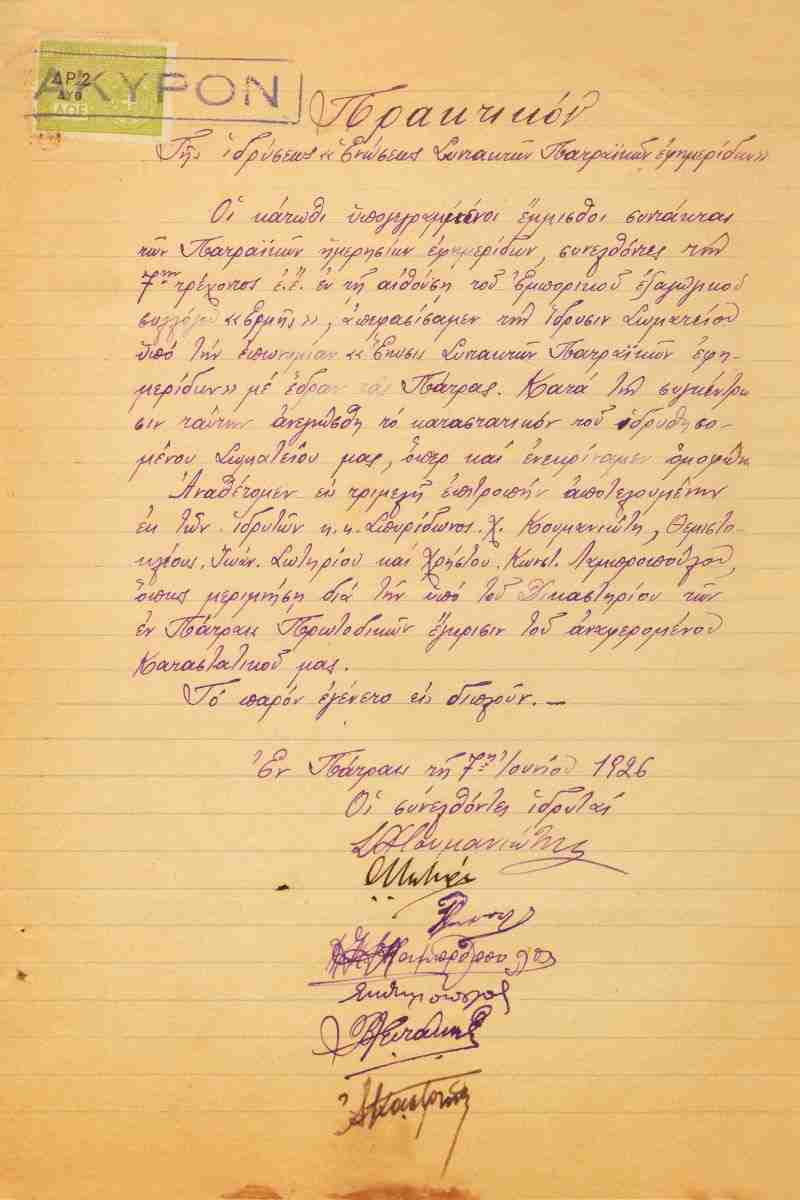 ΔΡ. 2
ΔΥΟ
ΑΚΥΡΟΝ
Πρακτικόν
Τῆς ἱδρύσεως «Ἑνώσεως Συντακτῶν Πατραϊκῶν ἐφημερίδων»
Οἱ κάτωθι ὑπογεγραμμένοι ἔμμισθοι συντάκται
τῶν Πατραϊκῶν ἡμερησίων ἐφημερίδων, συνελθόντες τὴν
7ην τρέχοντος ἔ.ἔ. ἐν τῇ αἰθούσῃ τοῦ Ἐμπορικοῦ ἐξαγωγικοῦ
συλλόγου «Ἑρμῆς», ἀπεφασίσαμεν τὴν ἵδρυσιν Σωματείου
ὑπό τήν ἐπωνυμίαν «Ἕνωσις Συντακτῶν Πατραϊκῶν ἐφη-
μερίδων» μέ ἕδραν τάς Πάτρας. Κατά τήν συγκέντρω
σιν ταύτην ἀνεγνώσθη τό καταστατικόν τοῦ ἱδρυθησο-
μένου Σωματείου μας, ὅπερ καί ἐνεκρίναμεν ὁμοφώνως
Ἀναθέτομεν εἰς τριμελῆ ἐπιτροπήν ἀποτελουμένην
ἐκ τῶν ἱδρυτῶν κ.κ. Σπυρίδωνος. Χ. Κουμανιώτη, Θεμιστο-
κλέους. Ἰωάν. Σωτηρίου καί Χρήστου. Κωνστ. Λαμπροπούλου,
ὅπως μεριμνήσῃ διά τήν ὑπό τοῦ Δικαστηρίου τῶν
ἐν Πάτραις Πρωτοδικῶν ἔγκρισιν τοῦ ἀναφερομένου
Καταστατικοῦ μας.
Τό παρόν ἐγένετο εἰς διπλοῦν. —
Ἐν Πάτραις τῇ 7ῃ Ἰουνίου 1926
Οἱ συνελθόντες ἱδρυταί
ΣΧΚουμανιώτης